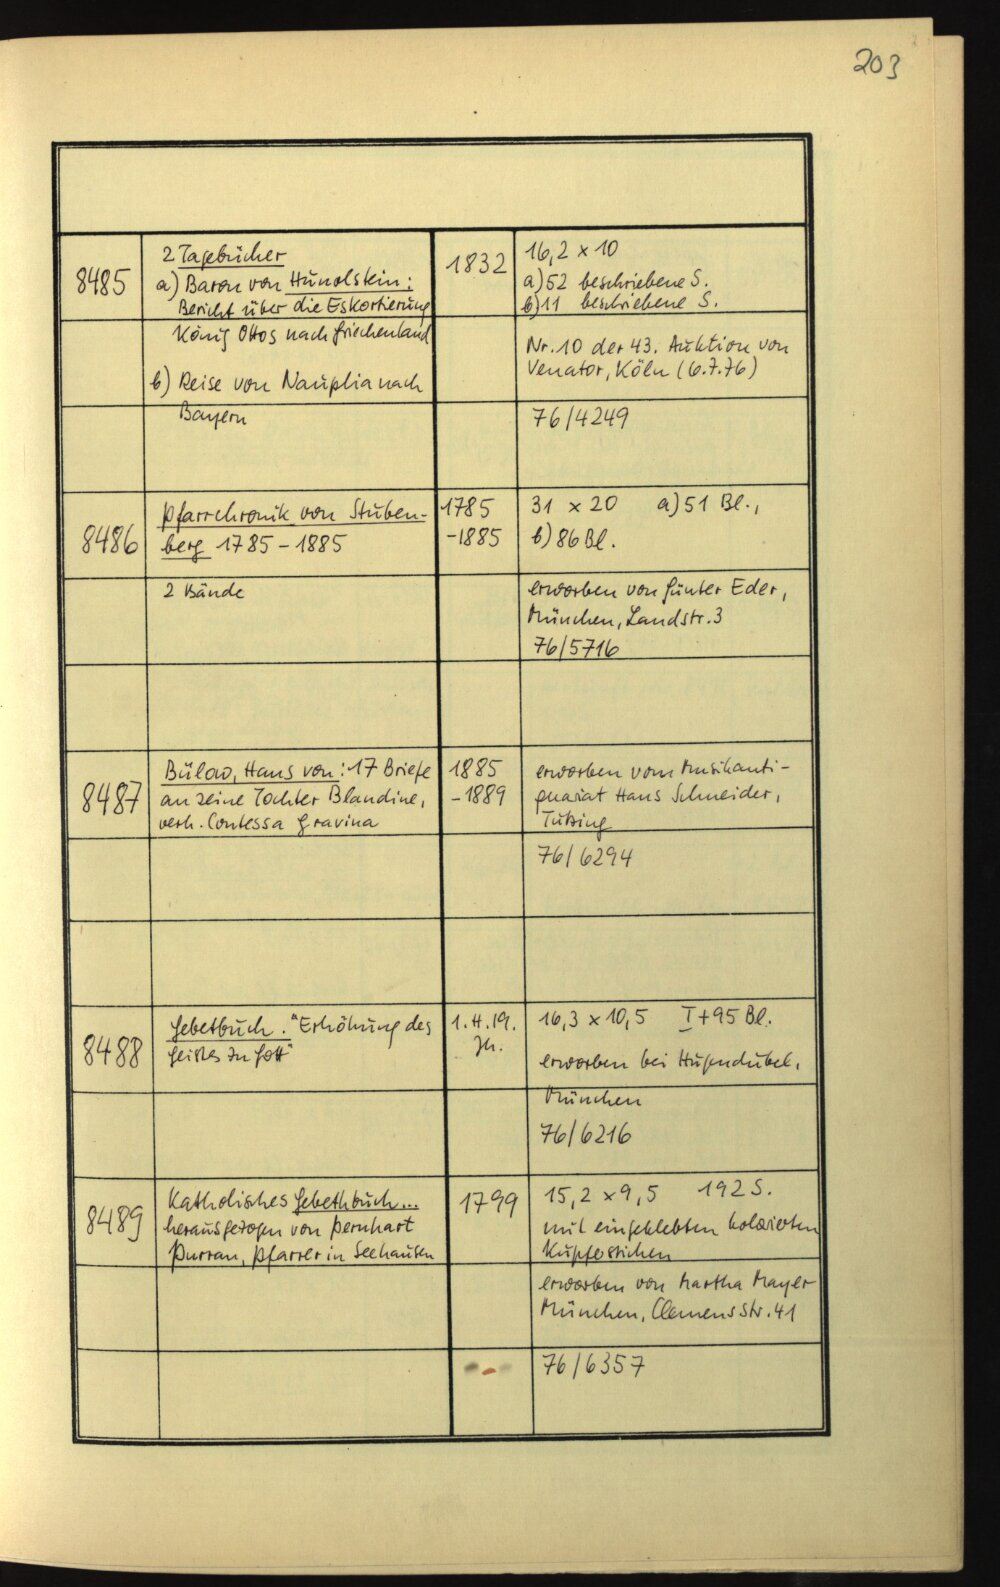 203
8485
2 Tagebücher
a) Baron von Hunolstein:
Bericht über die Eskortierung
König Ottos nach Griechenland
b) Reise von Nauplia nach
Bayern
1832
16,2 x 10
a) 52 beschriebene S.
b) 11 beschriebene S.
Nr. 10 der 43. Auktion von
Venator, Köln (6.7.76)
76/4249
8486
Pfarrchronik von Stuben-
berg 1785 - 1885
2 Bände
1785
-1885
31 x 20 a) 51 Bl.,
b) 86 Bl.
erworben von Günter Eder,
München, Landstr. 3
76/5716
8487
Bülow, Hans von: 17 Briefe
an seine Tochter Blandine,
verh. Contessa Gravina
1885
-1889
erworben vom Musikanti-
quariat Hans Schneider,
Tutzing
76/6294
8488
Gebetbuch. "Erhöhung des
Geistes zu Gott"
1. H. 19.
Jh.
16,3 x 10,5 I + 95 Bl.
erworben bei Hugendubel,
München
76/6216
8489
Katholisches Gebethbuch...
herausgezogen von Bernhart
Purran, Pfarrer in Seehausen
1799
15,2 x 9,5 192 S.
mit eingeklebten kolorierten
Kupferstichen
erworben von Martha Mayer
München, Clemensstr. 41
76/6357